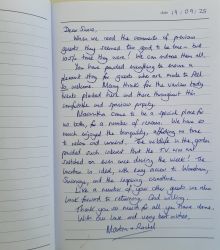 DATE 19/09/25
Dear Susie,
When we read the comments of previous
guests they seemed too good to be true - but
100% true they were! We can endorse them all.
You have provided everything to ensure a
pleasant stay for guests who are made to feel
so welcome. Many thanks for the various lovely
treats provided here and there throughout this
comfortable and spacious property.
has come to be a special place for
us both, for a number of reasons. We have so
much enjoyed the tranquility, affording us time
to relax and unwind. The wildlife in the garden
provided such interest that the TV was not
switched on even once during the week! The
location is ideal, with easy access to
Swanage, and the Jurassic coastline.
Like a number of your other guests we also
look forward to returning, God willing.
Thank you so much for all you have done.
With our love and very best wishes,
Martin + Rachel